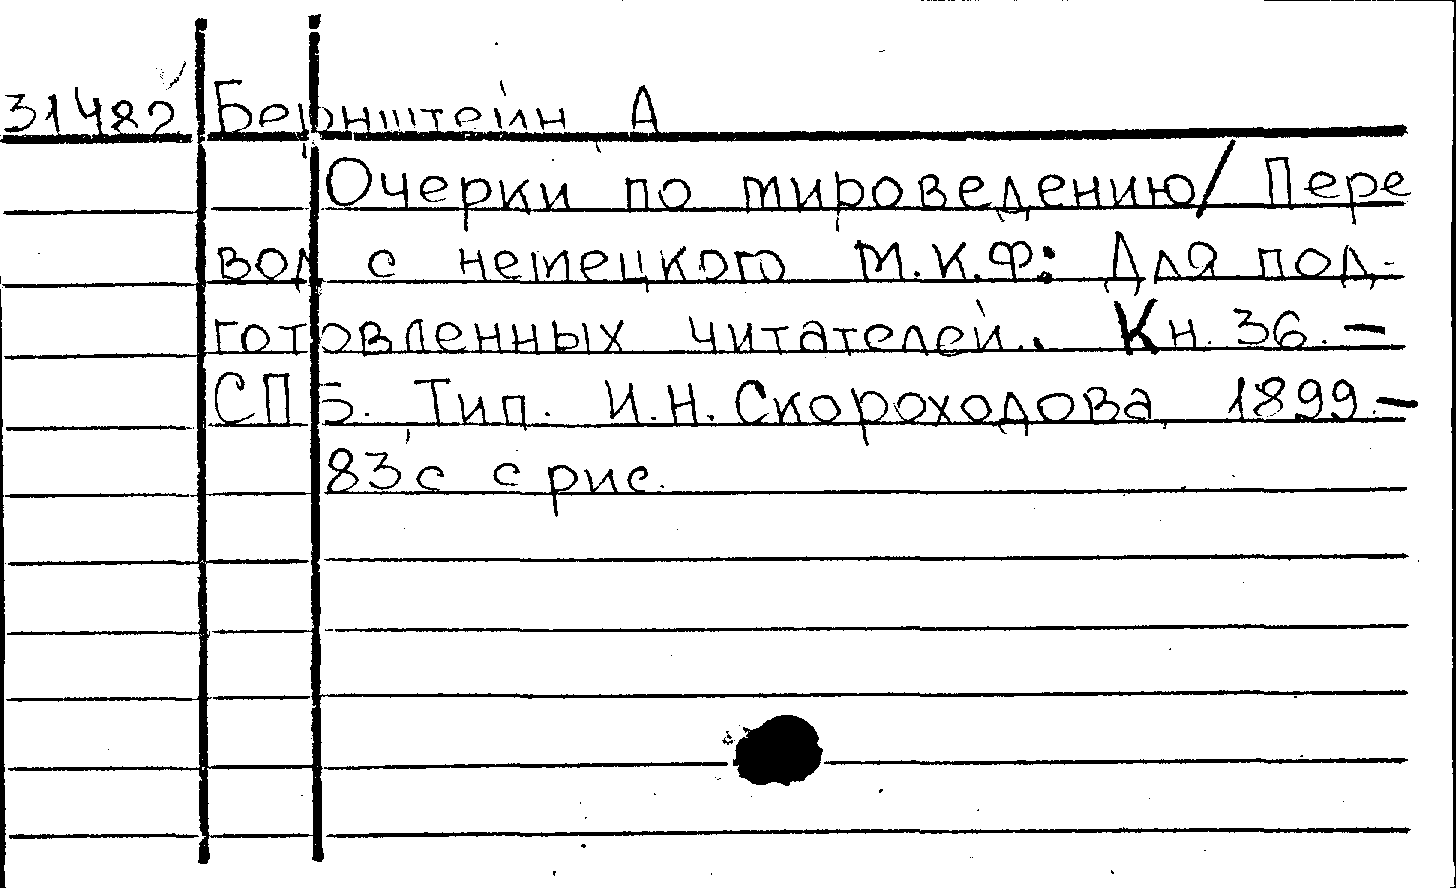 31482 Бернштейн А
Очерки по мироведению/ Пере
вод с немецкого М.К.Ф: Для под-
готовленных читателей. Кн. 36. –
СПБ. Тип. И.Н. Скороходова 1899. –
83 с с рис.